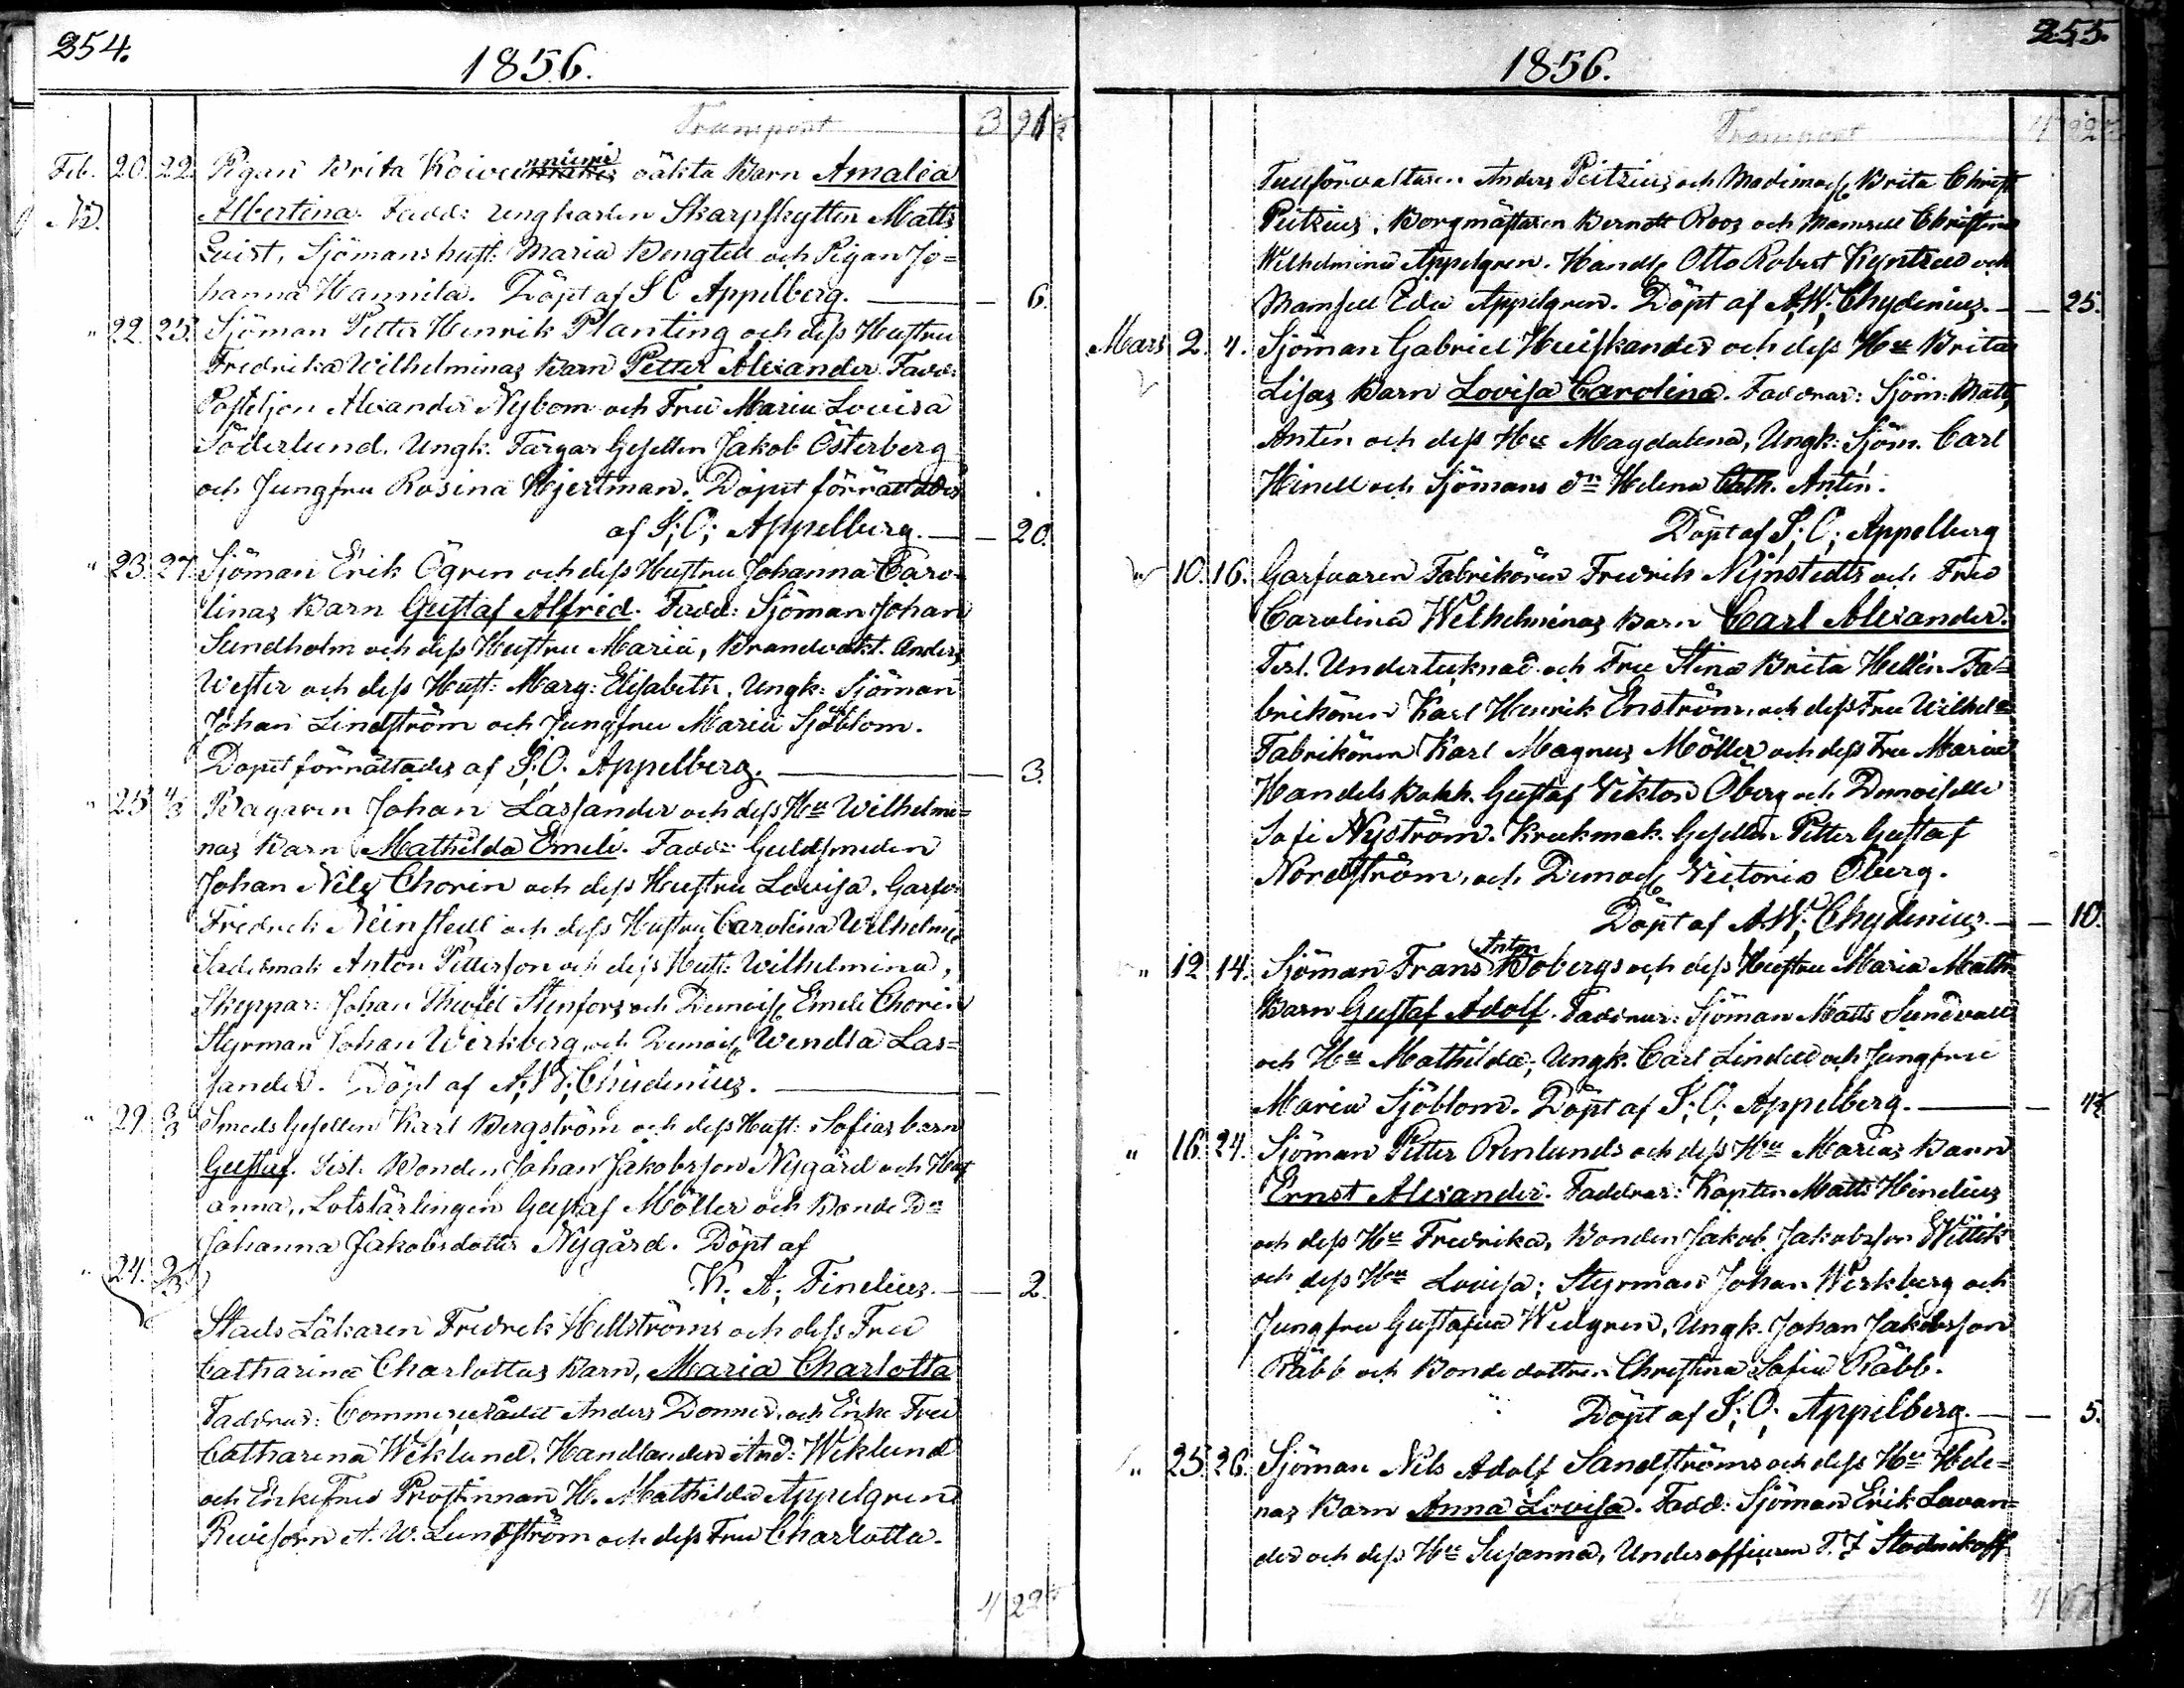 254.
1856.
Transport 3 91½
Feb. 20. 22. Pigan Brita oäkta Barn Amalia
Albertina. Fadd: Ungkarlen Skarpskytten Matts
Qvist, Sjömanshust: Maria Bengtell och Pigan Jo=
hanna Hannila. Döpt af S C Appelberg. — 6.
" 22. 25. Sjöman Petter Henrik Planting och dess Hustru
Fredrika Wilhelminas Barn Petter Alexander. Fadd:
Postiljon Alexander Nybom och Fru Maria Lovisa
Söderlund. Ungk. Färgar Gesellen Jakob Österberg
och Jungfru Rosina Hjertman. Döpet förrättades
af S; C; Appelberg. — 20.
" 23. 27. Sjöman Erik Ögren och dess Hustru Johanna Caro-
linas Barn Gustaf Alfred. Fadd: Sjöman Johan
Sundholm och dess Hustru Maria, Brandvakt. Anders
Wester och dess Hust: Marg: Elisabeth. Ungk: Sjöman
Johan Lindström och Jungfru Maria Sjöblom.
Dopet förrättades af S. C. Appelberg. — 3.
" 25. 4/3 Bagaren Johan Lassander och dess Hu Wilhelmi=
nas Barn Mathilda Emeli. Fadd: Guldsmeden
Johan Nils Chorin och dess Hustru Lovisa. Garfv:
Fredrik Neinstedt och dess Hustru Carolina Wilhelmi
Sadelmak Anton Petterson och dess Hust: Wilhelmina,
Skeppar: Johan Stenfors och Demois Emeli Chorin
Styrman Johan Wirkberg och Demois Wendla Las=
sander. Döpt af A; W; Chydenius. —
" 29. 3/3 Smeds Gesellen Karl Bergström och dess Hust: Sofias barn
Gustaf. Test. Bonden Johan Jakobsson Nygård och Hust
Anna, Lotslärlingen Gustaf Möller och Bonde Dn
Johanna Jakobsdotter Nygård. Döpt af
K; A; Finelius. — 2.
" 24. 2/3
Stads Läkaren Fredrek Hellströms och dess Fru
Catharina Charlottas Barn, Maria Charlotta
Faddrar: Commerserådet Anders Donner och Enke Fru
Catharina Wiklund. Handlanden And: Wiklund
och Enkefru Prostinnan H. Mathilda Appelgren
Revisorn A. W. Lundström och dess Fru Charlotta.
4 22½
255.
1856.
Transport 4 22
Tullförvaltaren Anders Peitzius och Madmois Brita Christ
Peitzius. Borgmästaren Berndt Roos och Mamsell Christina
Wilhelmina Appelgren. Handl Otto Robert och
Mamsell Eda Appelgren. Döpt af A; W; Chydenius. — 25.
Mars 2. 4. Sjöman Gabriel Huiskander och dess Hu Brita
Lisas Barn Lovisa Carolina. Faddrar: Sjöm: Matts
Antén och dess Hu Magdalena, Ungk: Sjöm. Carl
Hinell och Sjömans dn Helena Cath. Antén.
Döpt af S; C; Appelberg
10. 16. Garfvaren Fabrikören Fredrik Nijnstedts och Fru
Carolina Wilhelminas Barn Carl Alexander.
Test. Undertecknad och Fru Stina Brita Hellén Fa=
brikören Karl Henrik Enström och dess Fru Wilhel=
Fabrikören Karl Magnus Möller och dess Fru Maria
Handels Bokh. Gustaf Viktor Öberg och Demoiselle
Sofi Nyström. Krukmak. Gesellen Petter Gustaf
Nordström, och Demois Victoria Öberg.
Döpt af A. W; Chydenius. — 10.
" 12 14. Sjöman Frans Anton Bobergs och dess Hustru Maria Math
Barn Gustaf Adolf. Faddrar: Sjöman Matts Sundvall
och Hu Mathilda, Ungk. Carl Lindell och Jungfru
Maria Sjöblom. Döpt af S; C; Appelberg. — 4½
" 16. 24. Sjöman Petter Renlunds och dess Hu Marias Barn
Ernst Alexander. Faddrar: Kapten Matts Hindelius
och dess Hu Fredrika, Bonden Jakob Jakobsson Wittick
och dess Hu Lovisa; Styrman Johan Wirkberg och
Jungfru Gustafva Widgren, Ungk. Johan Jakobsson
Räbb och Bondedottren Christina Sofia Räbb.
Döpt af S; C; Appelberg. — 5.
" 25. 26. Sjöman Nils Adolf Sandströms och dess Hu Hele=
nas Barn Anna Lovisa. Fadd: Sjöman Erik Lavan=
der och dess Hu Susanna, Underofficeren T. F Stadnikoff